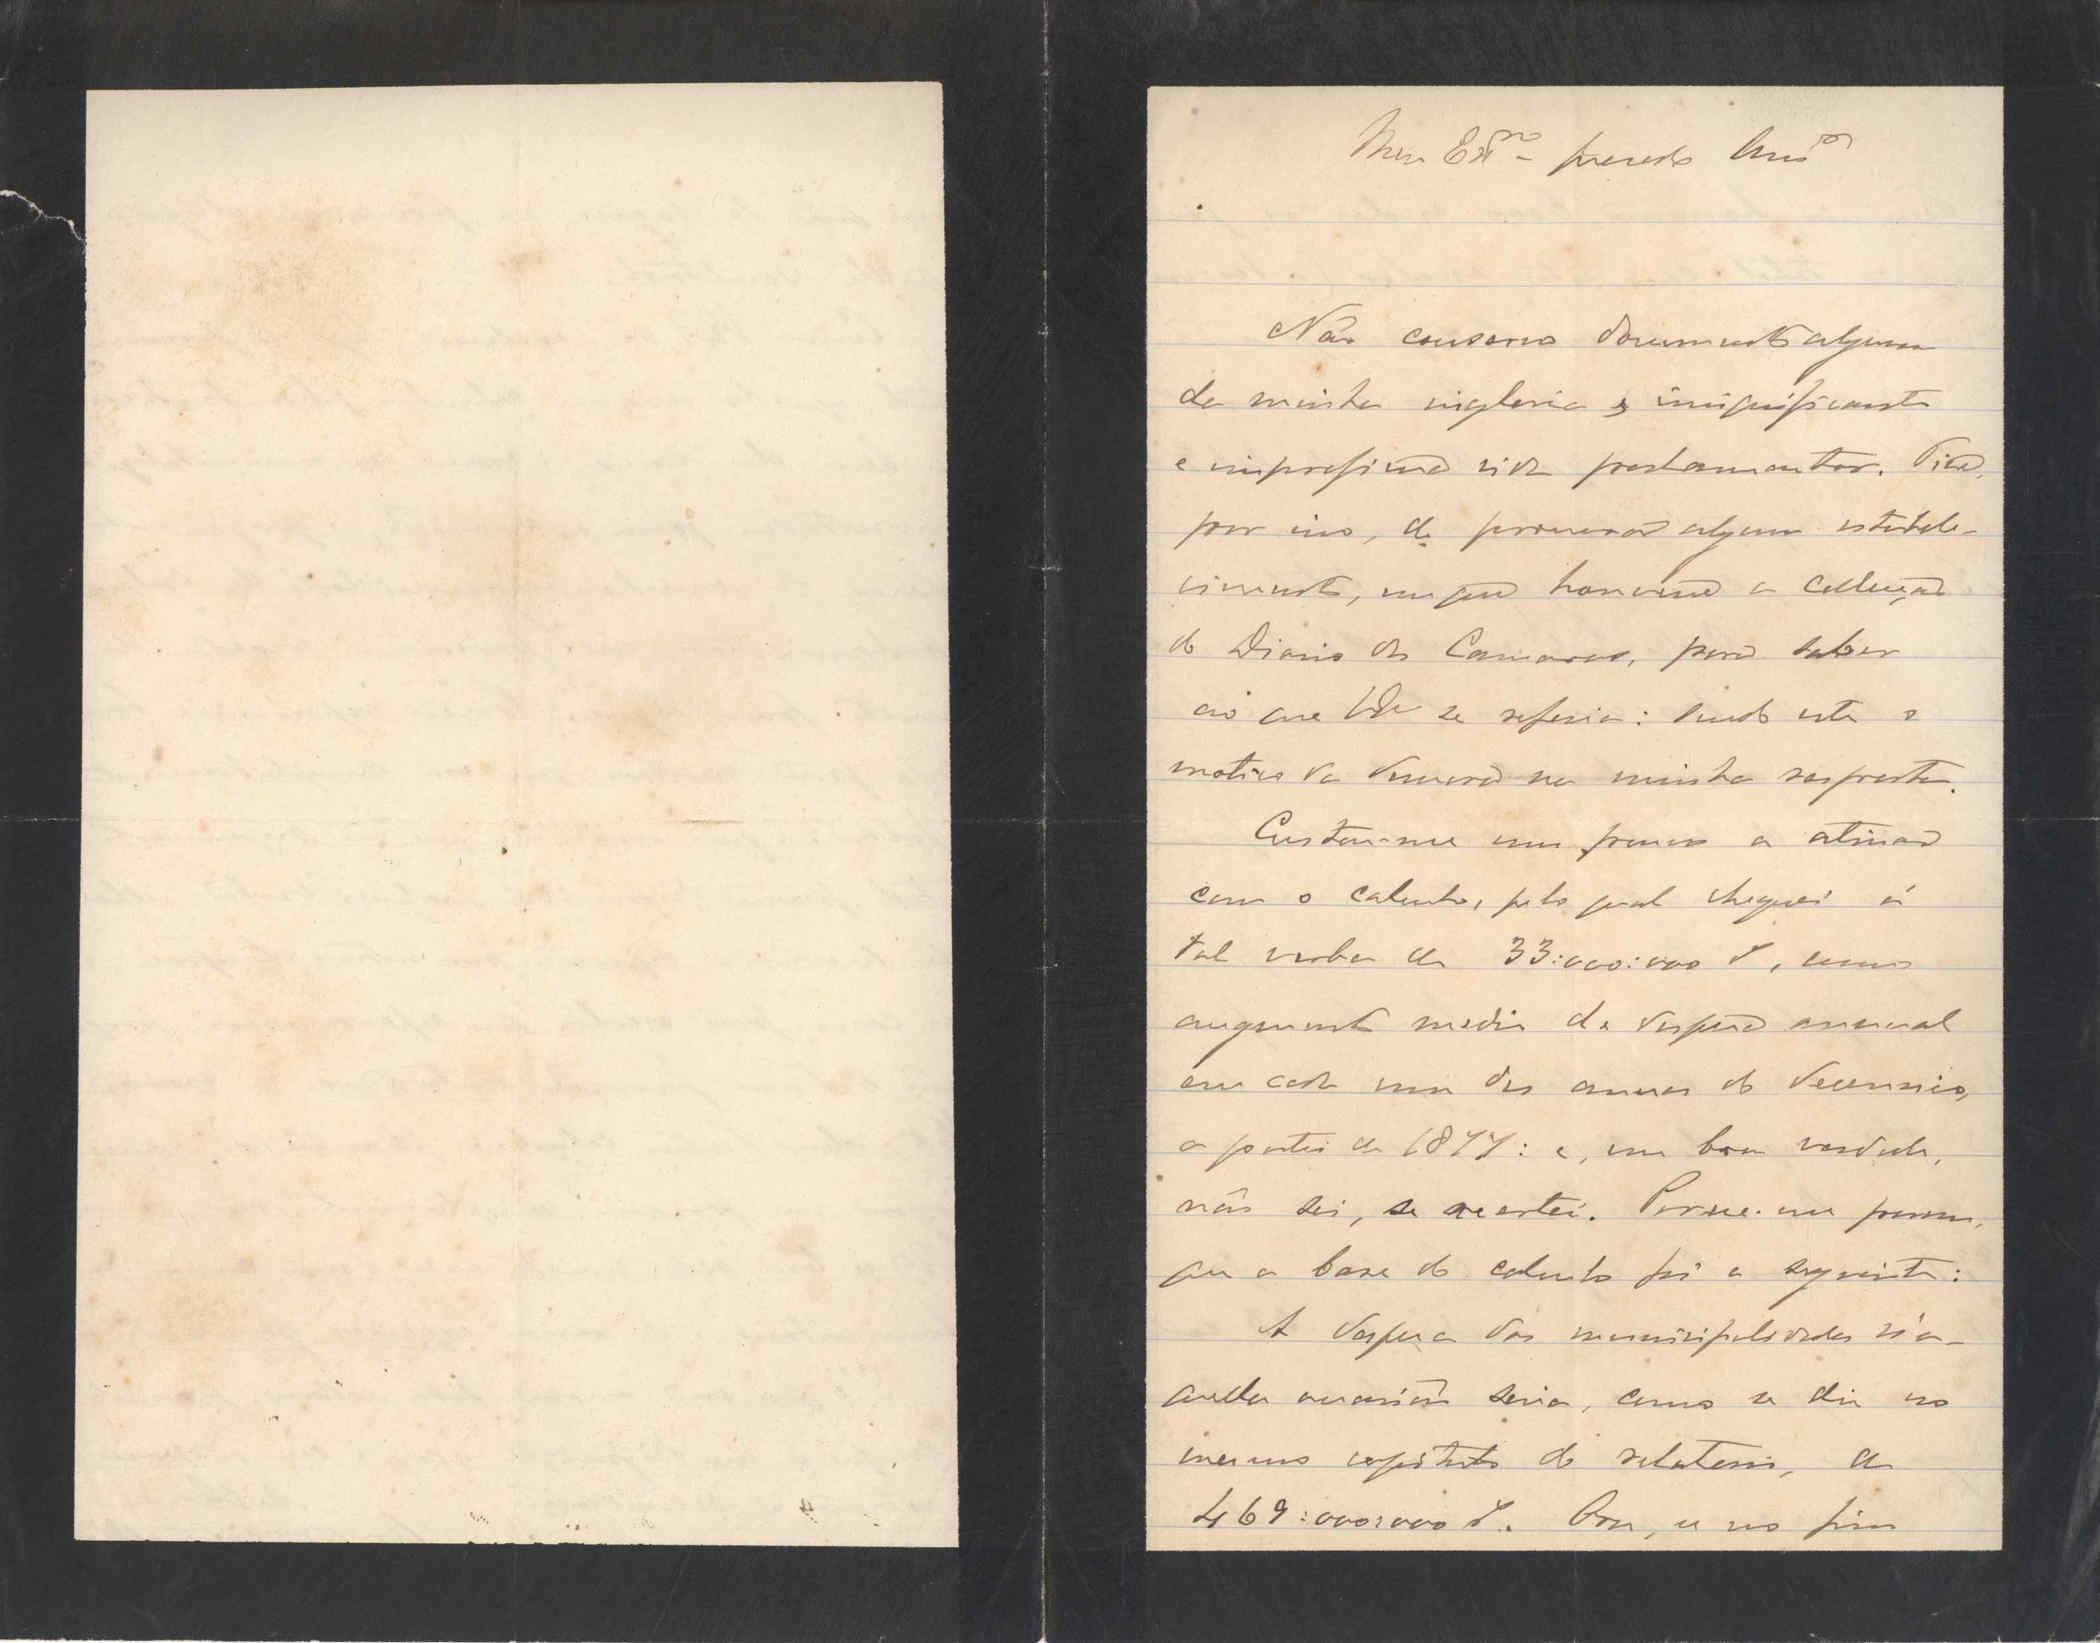 Meu Exmo prezado Amo
Não conservo documento algum
da minha ingloria e insignificante
e improficua vida parlamentar. Tive,
por isso, de procurar algum estabele-
cimento, em que houvesse a collecção
do Diario das Camaras, para saber
ao que VEx se referia: sendo este o
motivo da demora na minha resposta.
Custou-me um pouco a atinar
com o calculo, pelo qual cheguei á
tal verba de 33:000:000 $, como
augmento medio da despeza annual
em cada um dos annos do decennio,
a partir de 1877: e, em boa verdade,
não sei, se acertei. Parece-me porem,
que a base do calculo foi a seguinte:
A despeza das municipalidades n'a-
quella occasião seria, como se diz no
mesmo capitulo do relatorio, de
469:000:000 $. Ora, se no fim